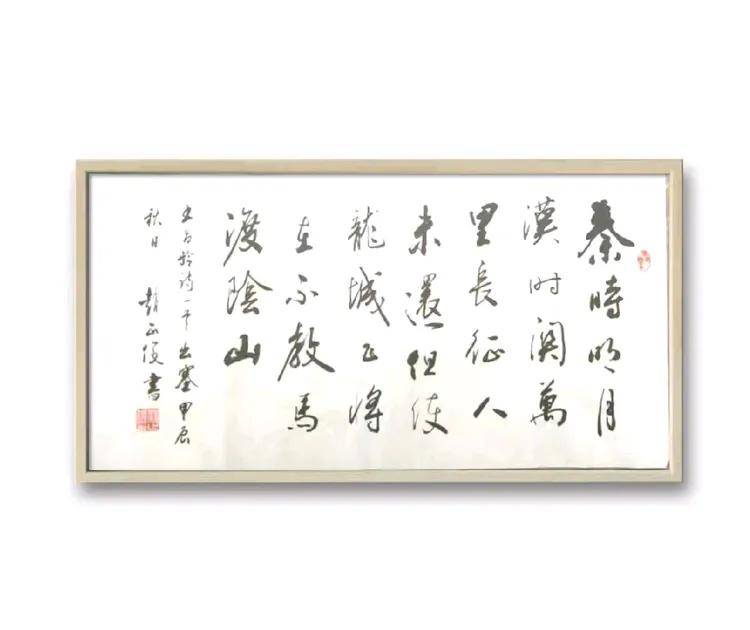 秦時明月
漢时関萬
里長征人
未還但使
龍城飞将
在不教馬
渡陰山
王昌龄诗一首出塞甲辰
秋日 趙正書